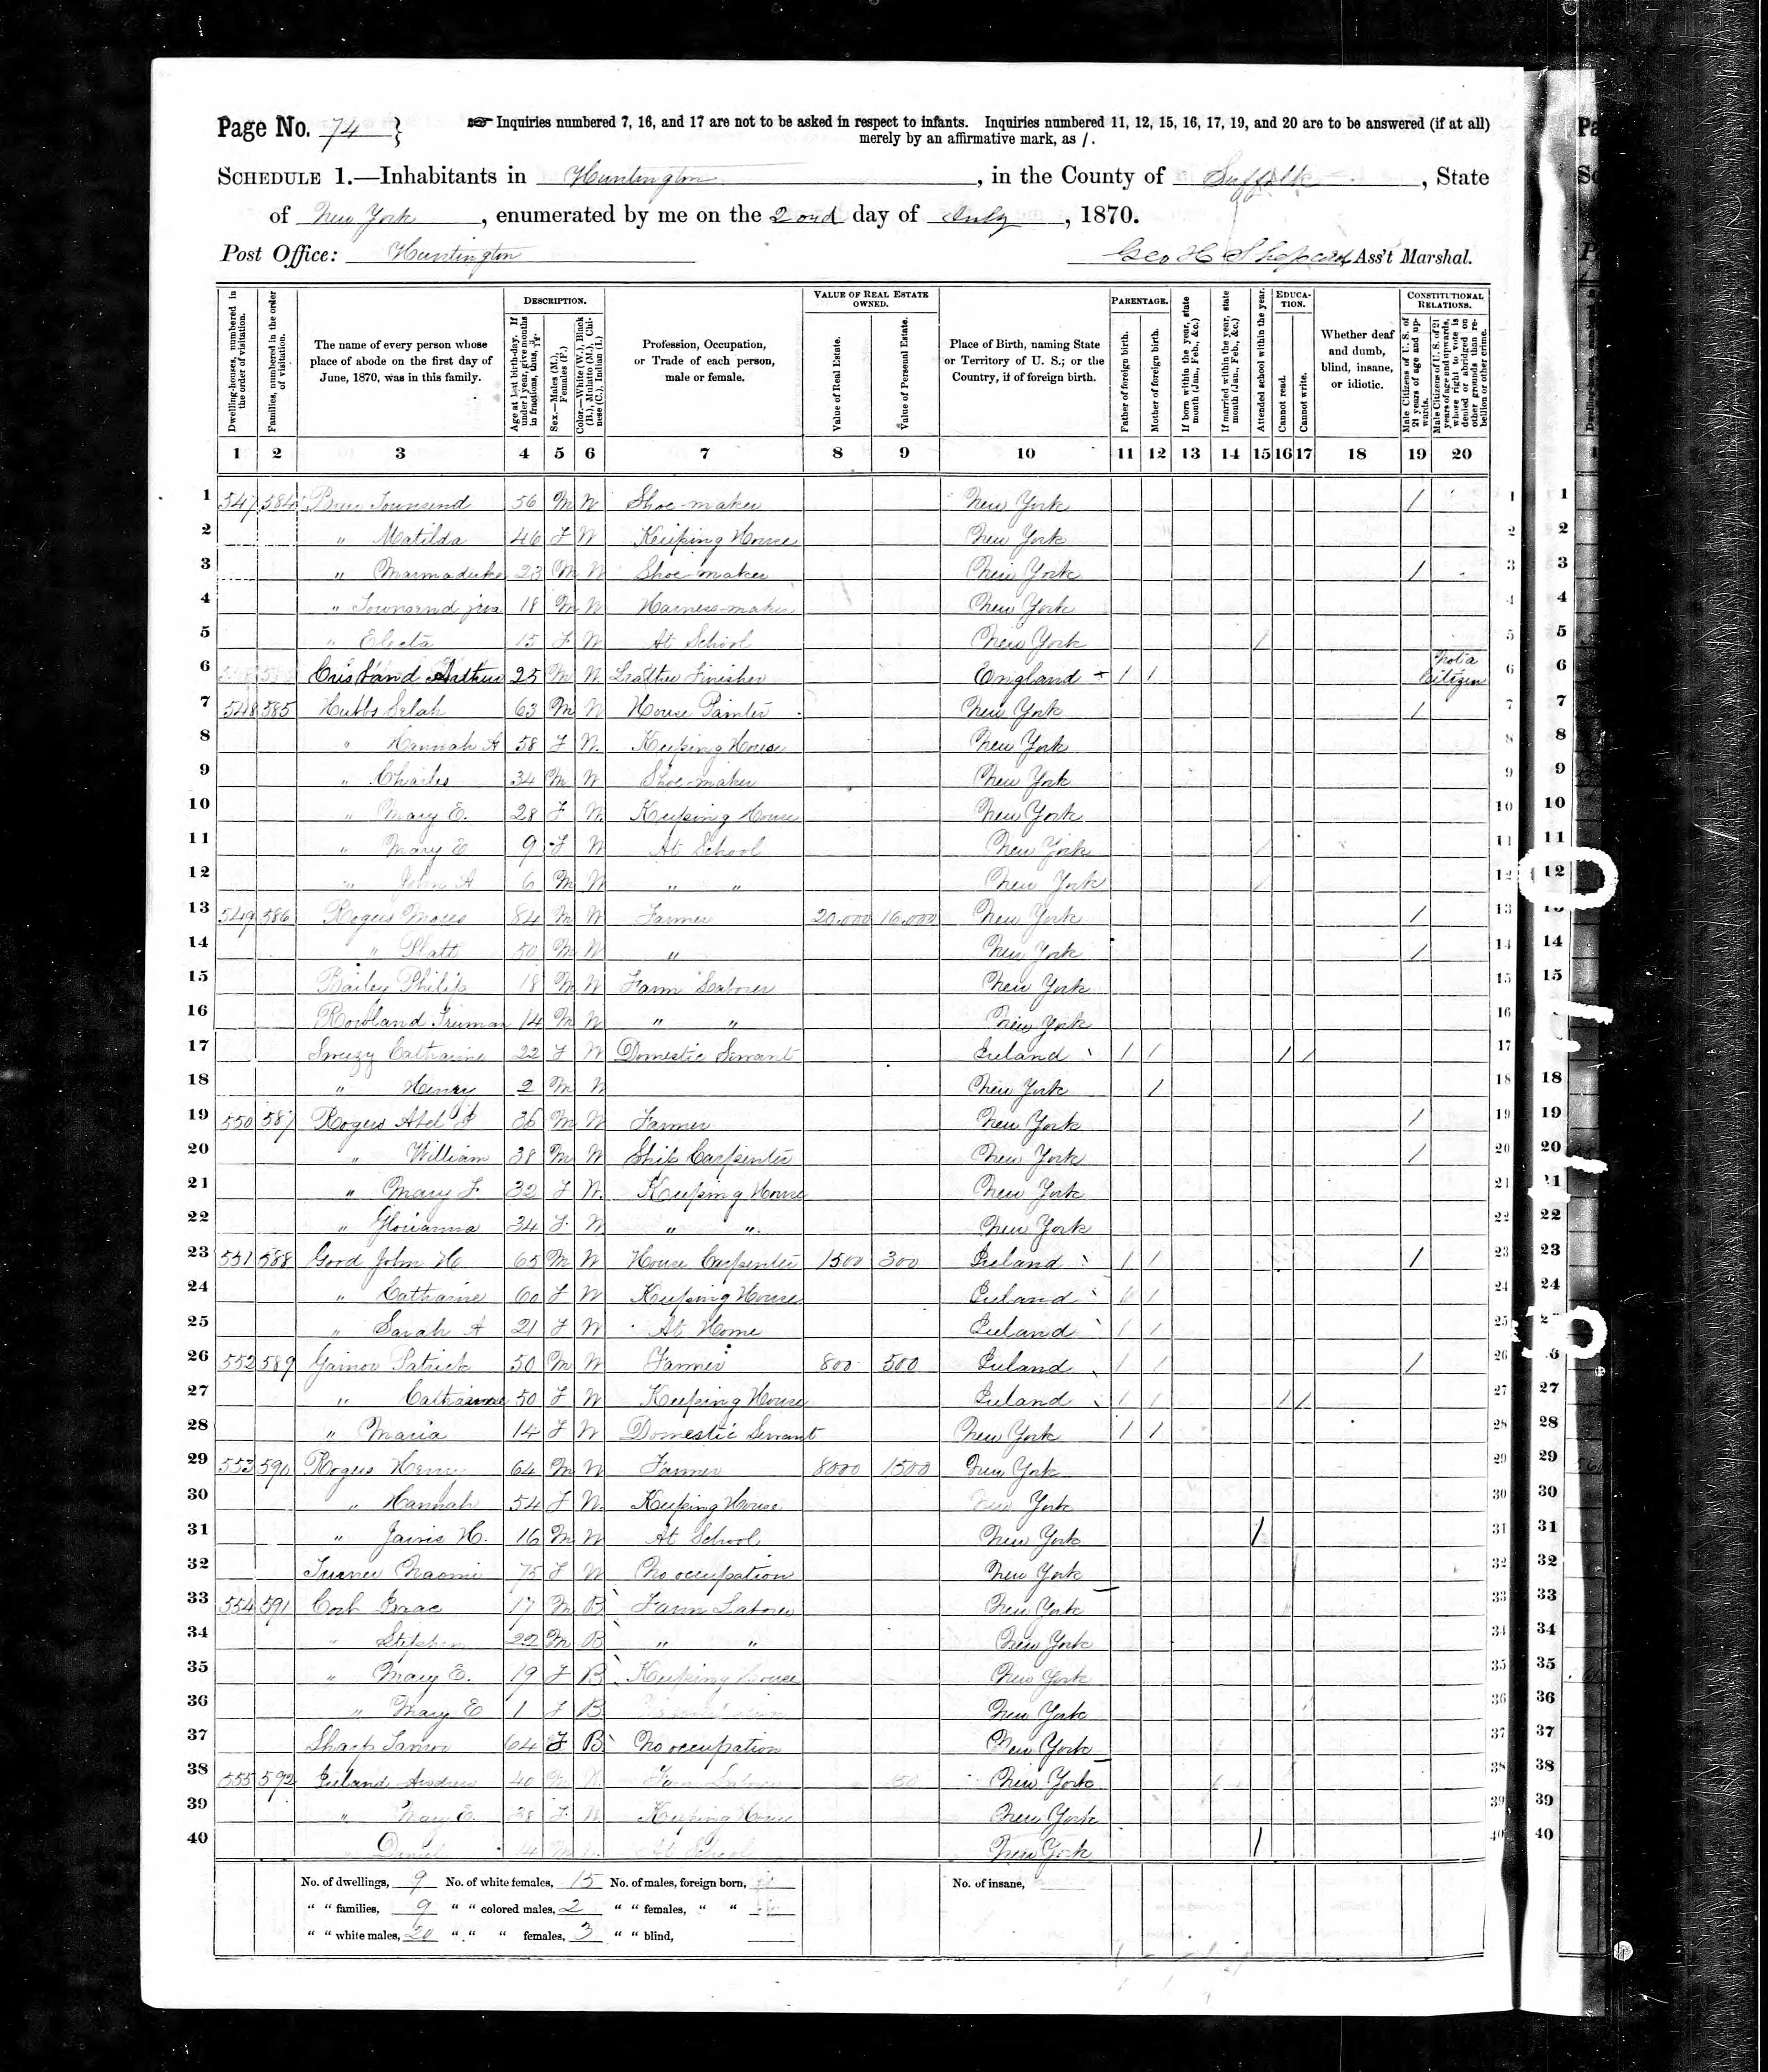 Page No. 74 }
☞ Inquiries numbered 7, 16, and 17 are not to be asked in respect to infants. Inquiries numbered 11, 12, 15, 16, 17, 19, and 20 are to be answered (if at all)
merely by an affirmative mark, as /.
SCHEDULE 1.—Inhabitants in Huntington, in the County of Suffolk, State
of New York, enumerated by me on the 2ond day of July, 1870.
Post Office: Huntington Geo H Shepard, Ass't Marshal.
Dwelling-houses, numbered in the order of visitation.
Families, numbered in the order of visitation.
The name of every person whose place of abode on the first day of June, 1870, was in this family.
DESCRIPTION.
Age at last birth-day. If under 1 year, give months in fractions, thus,
Sex.—Males (M.), Females (F.)
Color.—White (W.), Black (B.), Mulatto (M.), Chinese (C.), Indian (I.)
Profession, Occupation, or Trade of each person, male or female.
VALUE OF REAL ESTATE OWNED.
Value of Real Estate.
Value of Personal Estate.
Place of Birth, naming State or Territory of U. S.; or the Country, if of foreign birth.
PARENTAGE.
Father of foreign birth.
Mother of foreign birth.
If born within the year, state month (Jan., Feb., &c.)
If married within the year, state month (Jan., Feb., &c.)
EDUCATION.
Attended school within the year.
Cannot read.
Cannot write.
Whether deaf and dumb, blind, insane, or idiotic.
CONSTITUTIONAL RELATIONS.
Male Citizens of U. S. of 21 years of age and upwards.
Male Citizens of U. S. of 21 years of age and upwards, whose right to vote is denied or abridged on other grounds than rebellion or other crime.
1 2 3 4 5 6 7 8 9 10 11 12 13 14 15 16 17 18 19 20
1 547 584 Townsend 56 M W Shoe-maker New York / 1
2 " Matilda 46 F W Keeping House New York 2
3 " Marmaduke 23 M W Shoe maker New York / 3
4 " Townsend jun 18 M W Harness-maker New York 4
5 " Electa 15 F W At School New York / 5
6 Arthur 25 M W Leather Finisher England / / Not a Citizen 6
7 548 585 Hubbs Selah 63 M W House Painter New York / 7
8 " Hannah A 58 F W Keeping House New York 8
9 " Charles 34 M W Shoe-maker New York 9
10 " Mary E. 28 F W Keeping House New York 10
11 " Mary E 9 F W At School New York / 11
12 " John A 6 M W " " New York / 12
13 549 586 Rogers Moses 84 M W Farmer 20.000 16.000 New York / 13
14 " Platt 50 M W " New York / 14
15 Bailey Philip 18 M W Farm Laborer New York 15
16 Rowland Truman 14 M W " " New York 16
17 Sweezy Catharine 22 F W Domestic Servant Ireland / / / / 17
18 " Henry 2 M W New York / 18
19 550 587 Rogers Abel 36 M W Farmer New York / 19
20 " William 38 M W Ship Carpenter New York / 20
21 " Mary F. 32 F W Keeping House New York 21
22 " Glorianna 34 F W " " New York 22
23 551 588 Good John H 65 M W House Carpenter 1500 300 Ireland / / / 23
24 " Catharine 60 F W Keeping House Ireland / / 24
25 " Sarah A 21 F W At Home Ireland / / 25
26 552 589 Gainor Patrick 50 M W Farmer 800 500 Ireland / / / 26
27 " Catharine 50 F W Keeping House Ireland / / / / 27
28 " Maria 14 F W Domestic Servant New York / / 28
29 553 590 Rogers Henry 64 M W Farmer 8000 1500 New York 29
30 " Hannah 54 F W Keeping House New York 30
31 " Jarvis H. 16 M W At School New York / 31
32 Naomi 75 F W No occupation New York 32
33 554 591 Isaac 17 M B Farm Laborer New York 33
34 " Stephen 22 M B " " New York 34
35 " Mary E. 19 F B Keeping House New York 35
36 " Mary E 1 F B New York 36
37 Sharp 64 F B No occupation New York 37
38 555 592 Ireland Andrew 40 M W Farm Laborer 150 New York 38
39 " Mary E. 38 F W Keeping House New York 39
40 " Daniel 14 M W At School New York / 40
No. of dwellings, 9 No. of white females, 15 No. of males, foreign born, No. of insane,
" " families, 9 " " colored males, 2 " " females, " "
" " white males, 20 " " " females, 3 " " blind,